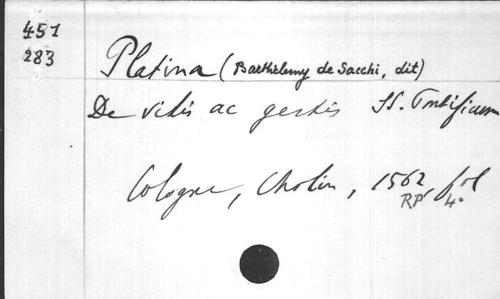 451
283
Platina (Barthélemy de Sacchi, dit)
De vitis ac gestis SS. Pontificum
Cologne, Cholin, 1562, fol
RP 4°